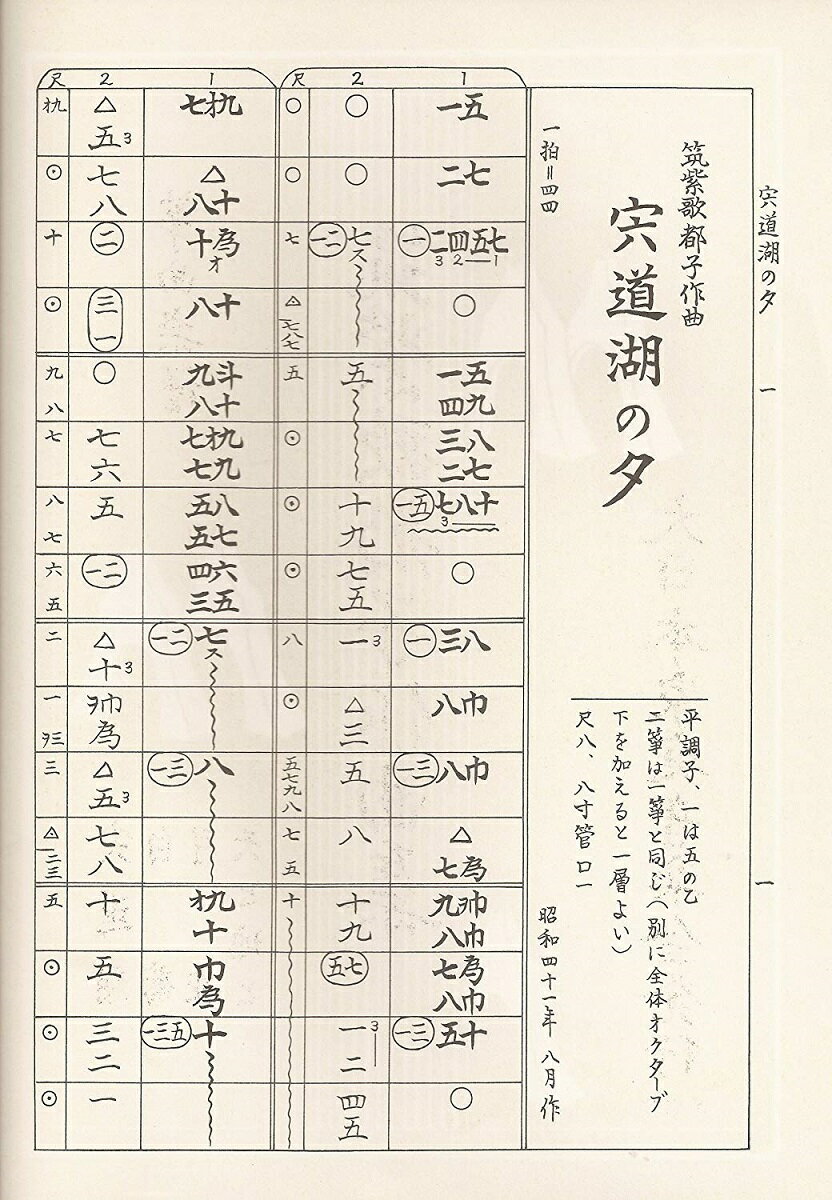 宍道湖の夕
一
一
筑紫歌都子作曲
宍道湖の夕
一拍=四四
平調子、一は五の乙
二箏は一箏と同じ(別に全体オクターブ
下を加えると一層よい)
尺八、八寸管ロ一
昭和四十一年 八月 作
1
一五
二七
一 二四五七
3 2 1
○
一五
四九
三八
二七
一五 七八十
3
○
一 三八
八巾
一三 八巾
△
七為
九 巾
八巾
七為
八巾
一三 五十
○
2
○
○
一二 七ス
五
十
九
七
五
一3
△
三
五
八
十
九
五七
一3
二
四
五
尺
○
○
七
△
七八七
五
⊙
⊙
⊙
八
⊙
五七九八
七
五
十
1
七 九
△
八十
十為
オ
八十
九斗
八十
七 九
七九
五八
五七
四六
三五
一二 七ス
一三 八
九
十
巾
為
一三五 十
2
△
五3
七
八
二
三一
○
七
六
五
一二
△
十3
巾
為
△
五3
七
八
十
五
三
二
一
尺
九
⊙
十
⊙
九
八
七
八
七
六
五
二
一
三
三
△
二三
五
⊙
⊙
⊙